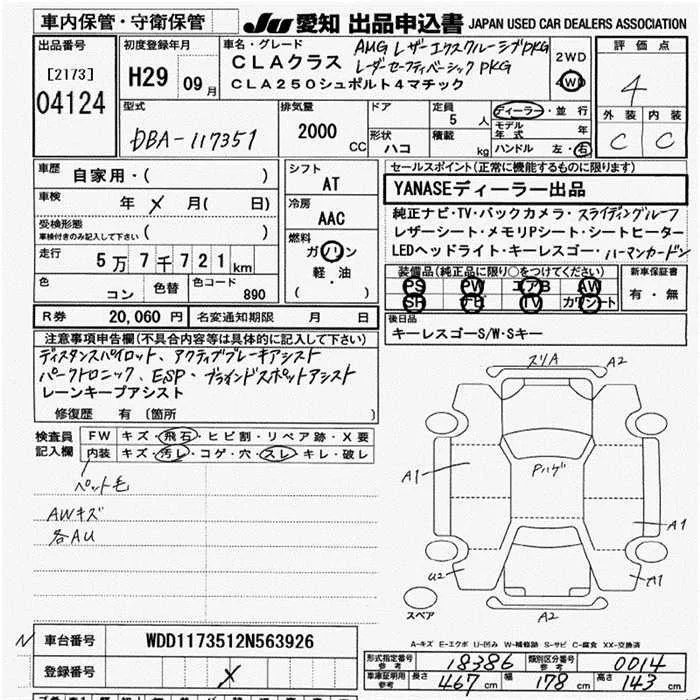 車内保管・守衛保管 JU 愛知 出品申込書 JAPAN USED CAR DEALERS ASSOCIATION
出品番号 初度登録年月 車名・グレード AMG レザーエクスクルーシブPKG 2WD 評価点
[2173] H29 09月 CLAクラス レーダーセーフティベーシックPKG 4WD 4
04124 CLA250シュポルト4マチック 外装 内装
型式 排気量 ドア 定員 5人 ディーラー・並行 C C
DBA-117351 2000CC 形状 ハコ 積載 kg モデル年式 年
ハンドル 左・右
車歴 自家用・( ) シフト AT セールスポイント(正常に機能するものに限ります)
車検 年 メ 月( 日) 冷房 AAC YANASEディーラー出品
受検形態 車検付きのみ記入して下さい ( ) 純正ナビ・TV・バックカメラ・スライディングルーフ
走行 5万7千721km 燃料 ガソリン レザーシート・メモリPシート・シートヒーター
軽・油 LEDヘッドライト・キーレスゴー・ハーマンカードン
色 コン 色替 色コード 890 ( ) 装備品(純正品に限り○をつけてください) 新車保証書
PS PW エアB AW 有・無
SR ナビ TV カワシート
R券 20,060円 名変通知期限 月 日 後日品
キーレスゴーS/W・Sキー
注意事項申告欄(不具合内容等は具体的に記入して下さい)
ディスタンスパイロット、アクティブブレーキアシスト
パークトロニック、ESP・ブラインドスポットアシスト
レーンキープアシスト
修復歴 有 〔箇所 〕
検査員記入欄 FW キズ・飛石・ヒビ割・リペア跡・X要
内装 キズ・汚レ・コゲ・穴・スレ・キレ・破レ
ペット毛
AWキズ
各AU
スリA A2
Pハゲ
A1
A1
U2 A1
スペア A2
A-キズ E-エクボ U-凹み W-補修跡 S-サビ C-腐食 XX-交換済
N 車台番号 WDD1173512N563926
登録番号 メ
形式指定番号 参考 18386 類別区分番号 参考 0014
車庫証明用 参考 長さ 467cm 幅 178cm 高さ 143cm